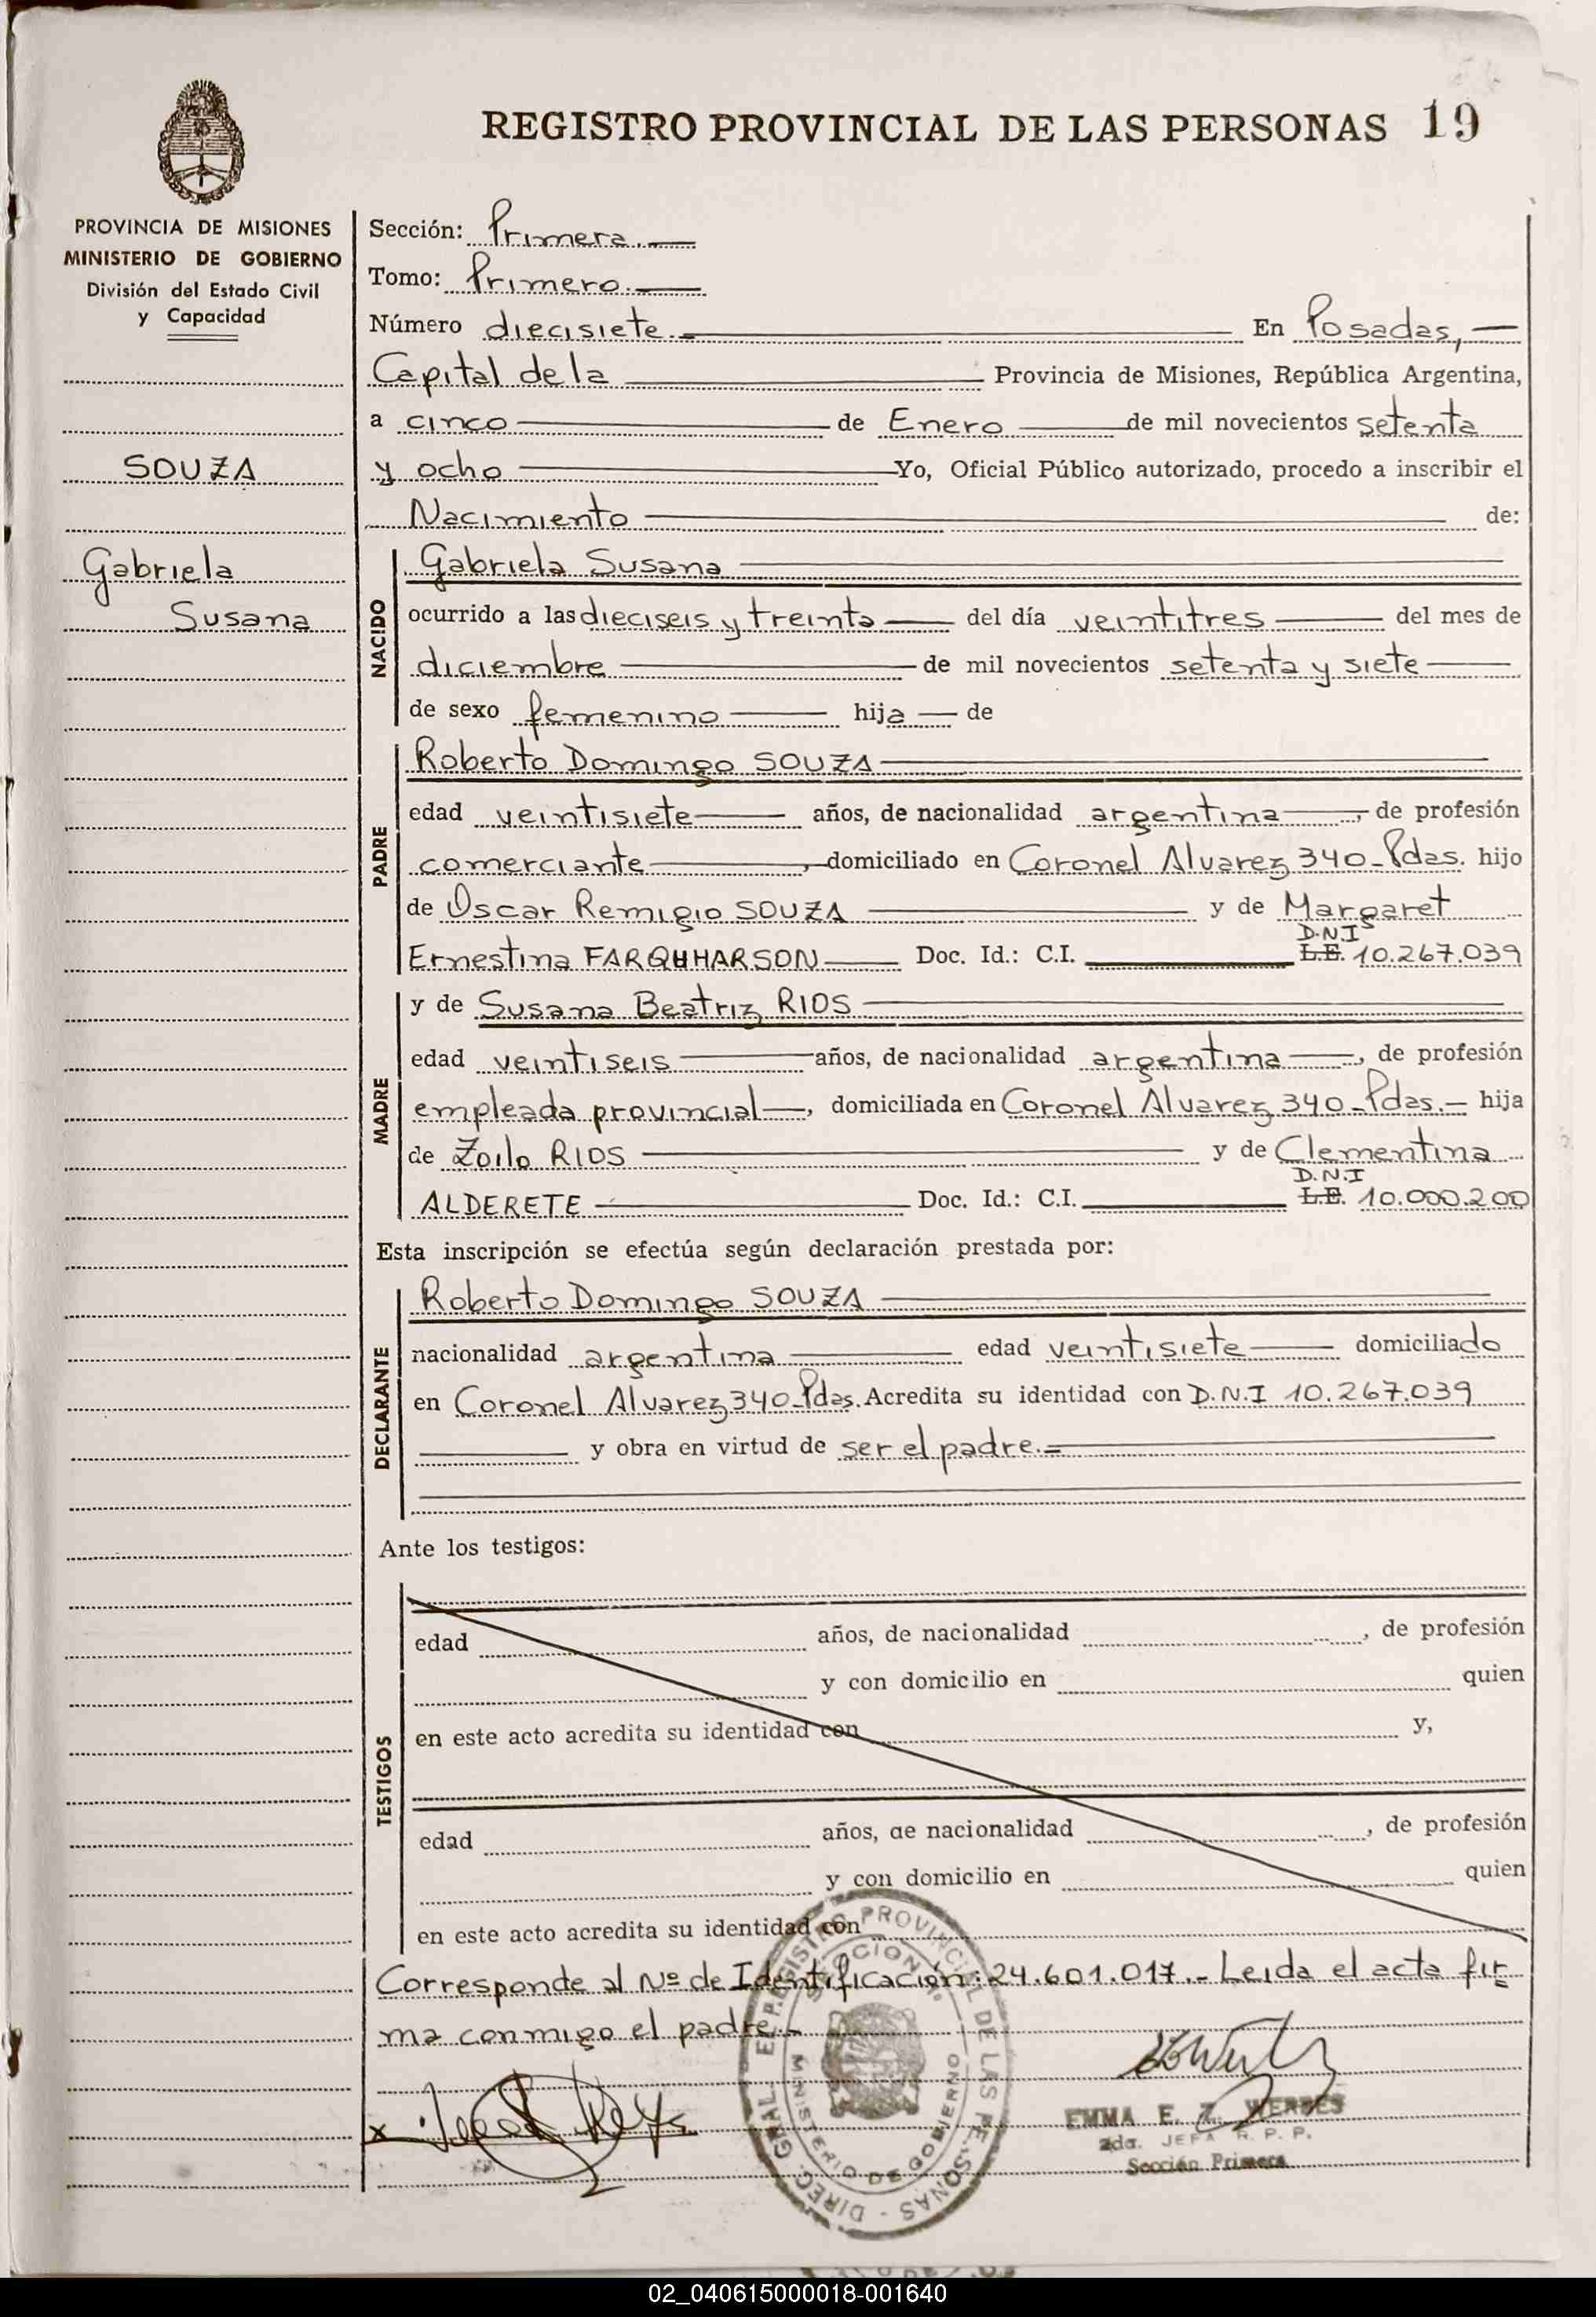 REGISTRO PROVINCIAL DE LAS PERSONAS 19
PROVINCIA DE MISIONES
MINISTERIO DE GOBIERNO
División del Estado Civil
y Capacidad
SOUZA
Gabriela
Susana
Sección: Primera.
Tomo: Primero.
Número diecisiete. En Posadas,
Capital de la Provincia de Misiones, República Argentina,
a cinco de Enero de mil novecientos setenta
y ocho Yo, Oficial Público autorizado, procedo a inscribir el
Nacimiento de:
NACIDO
Gabriela Susana
ocurrido a las dieciseis y treinta del día veintitres del mes de
diciembre de mil novecientos setenta y siete
de sexo femenino hija de
PADRE
Roberto Domingo SOUZA
edad veintisiete años, de nacionalidad argentina, de profesión
comerciante, domiciliado en Coronel Alvarez 340_Pdas. hijo
de Oscar Remigio SOUZA y de Margaret
D.N.I
Ernestina FARQUHARSON Doc. Id.: C.I. L.E. 10.267.039
MADRE
y de Susana Beatriz RIOS
edad veintiseis años, de nacionalidad argentina, de profesión
empleada provincial, domiciliada en Coronel Alvarez 340_Pdas. hija
de Zoilo RIOS y de Clementina
D.N.I
ALDERETE Doc. Id.: C.I. L.E. 10.000.200
Esta inscripción se efectúa según declaración prestada por:
DECLARANTE
Roberto Domingo SOUZA
nacionalidad argentina edad veintisiete domiciliado
en Coronel Alvarez 340_Pdas. Acredita su identidad con D.N.I 10.267.039
y obra en virtud de ser el padre.
Ante los testigos:
TESTIGOS
edad años, de nacionalidad , de profesión
y con domicilio en quien
en este acto acredita su identidad con y,
edad años, de nacionalidad , de profesión
y con domicilio en quien
en este acto acredita su identidad con
Corresponde al Nº de Identificación: 24.601.017.- Leida el acta fir
ma conmigo el padre.-
REGISTRO PROVINCIAL DE LAS PERSONAS - DIREC. GRAL
SECCION
MINISTERIO DE GOBIERNO
EMMA E. Z. WERBES
2da. JEFA R. P. P.
Sección Primera
02_040615000018-001640